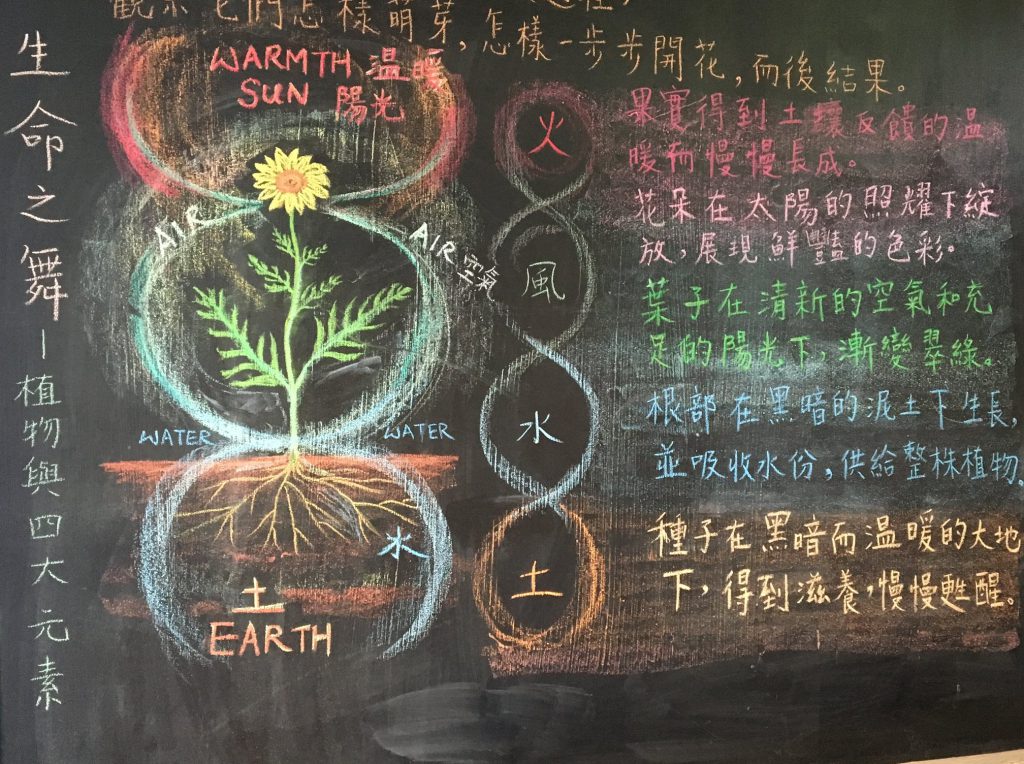 觀察它們怎樣萌芽,怎樣一步步開花,而後結果。
生命之舞-植物與四大元素
WARMTH 温暖
SUN 陽光
AIR
AIR 空氣
WATER
WATER
水
土
EARTH
火
風
水
土
果實得到土壤反饋的温
暖而慢慢長成。
花朵在太陽的照耀下綻
放,展現鮮豔的色彩。
葉子在清新的空氣和充
足的陽光下,漸變翠綠。
根部在黑暗的泥土下生長,
並吸收水份,供給整株植物。
種子在黑暗而温暖的大地
下,得到滋養,慢慢甦醒。